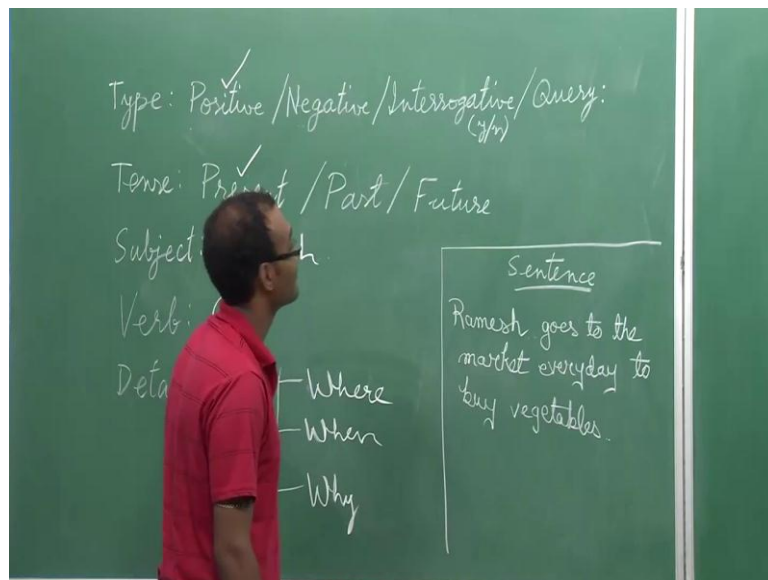 Type: Positive / Negative / Interrogative / Query:
(y/n)
Tense: Present / Past / Future
Subject:
Verb:
Where
When
Why
Sentence
Ramesh goes to the
market everyday to
buy vegetables.